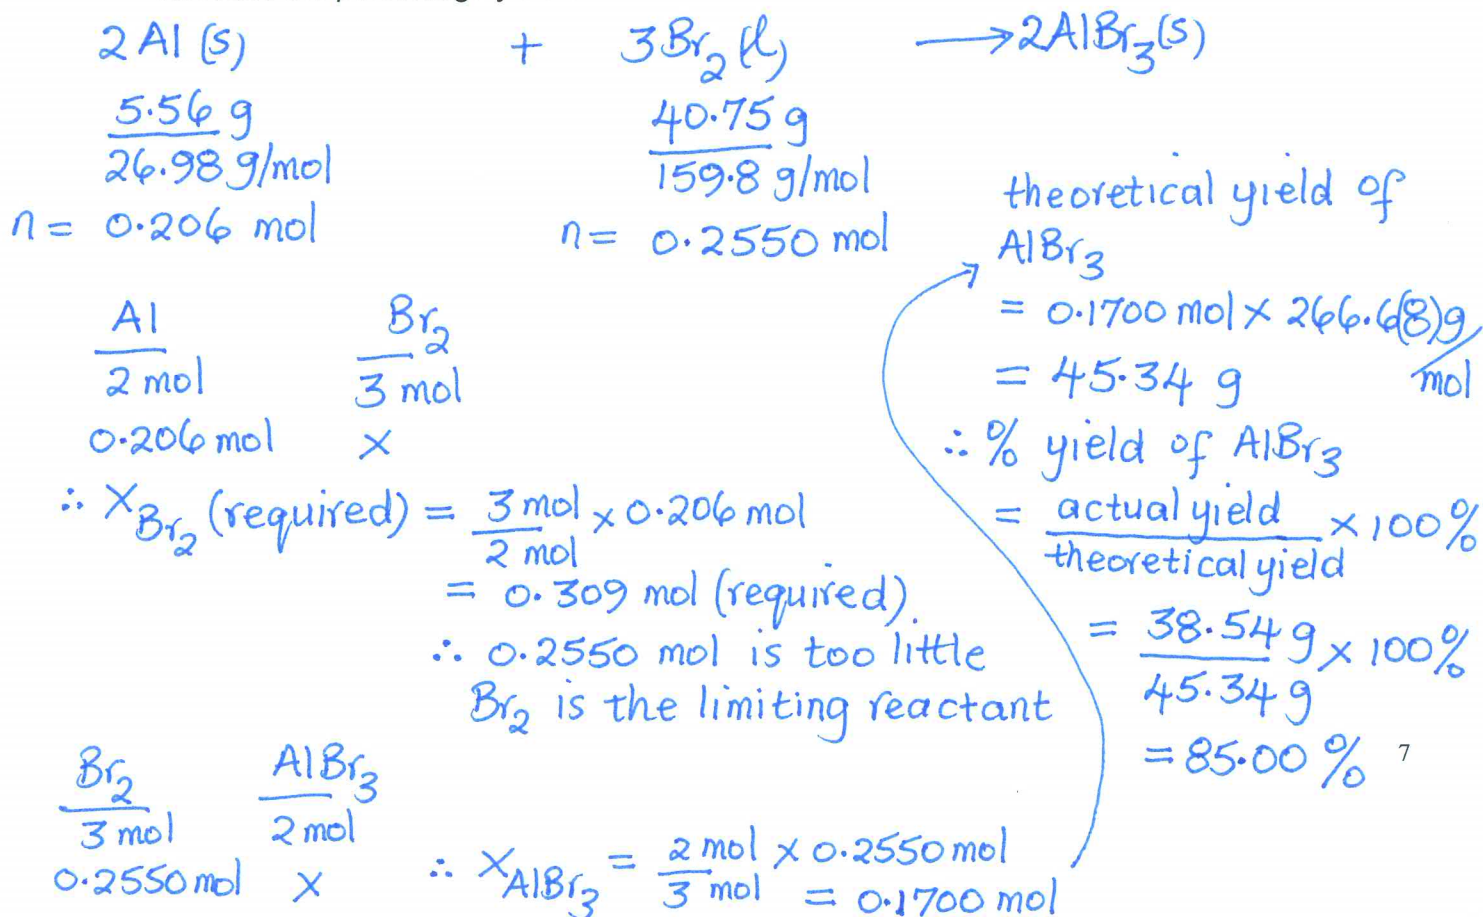 2Al(s) + 3Br₂(l) ⟶ 2AlBr₃(s)
5.56 g
26.98 g/mol
n = 0.206 mol
40.75 g
159.8 g/mol
n = 0.2550 mol
Al Br₂
2 mol 3 mol
0.206 mol X
∴ X Br₂ (required) = 3 mol / 2 mol × 0.206 mol
= 0.309 mol (required)
∴ 0.2550 mol is too little
Br₂ is the limiting reactant
Br₂ AlBr₃
3 mol 2 mol
0.2550 mol X
∴ X AlBr₃ = 2 mol / 3 mol × 0.2550 mol
= 0.1700 mol
theoretical yield of
AlBr₃
= 0.1700 mol × 266.6(8)g/mol
= 45.34 g
∴ % yield of AlBr₃
= actual yield / theoretical yield × 100%
= 38.54 g / 45.34 g × 100%
= 85.00 %
7